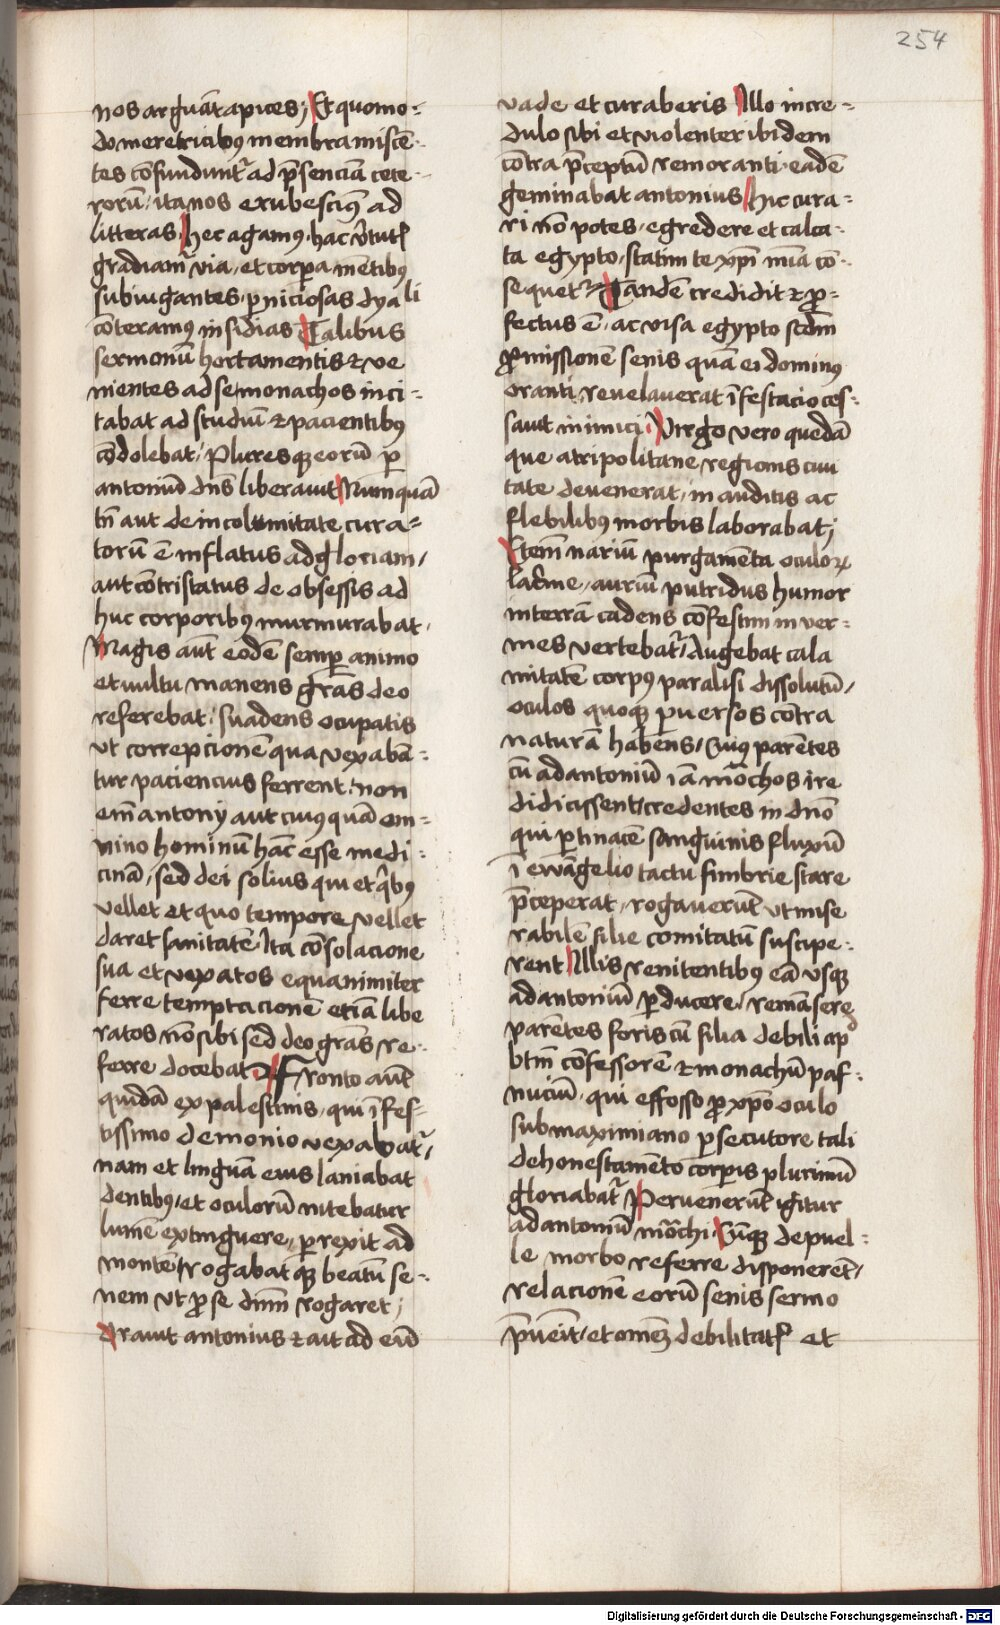 254
nos arguāt apices; Et quomo-
do meretricibꝰ membra miscē-
tes cōfundunt᷑ ad p̄senciā cete-
rorū, ita nos erubescimꝰ ad
litteras, hec agamꝰ, hac v̄tutꝭ
gradiamꝰ via, et corpora mētibꝰ
subiugantes, ꝑniciosas dyali
cōteramꝰ insidias Talibus
sermonū hortamentis ⁊ ve
nientes ad se monachos inci-
tabat ad studiū ⁊ pacientibꝰ
cōdolebat, Plures qꝫ eorū ꝑ
antoniū dn̄s liberauit Numquā
tn̄ aut de incolumitate cura-
torū ē inflatus ad gloriam,
aut cōtristatus de obsessis ad
huc corporibꝰ murmurabat.
Magis aūt eodē semꝑ animo
et uultu manens gr̄as deo
referebat, suadens ocupatis
vt correpcionē qua vexabā-
tur paciencius ferrent, non
em̄ antonij aut cuiꝰquā om-
nino hominū hāc esse medi-
cinā, sed dei solius qui et q̄bꝰ
vellet et quo tempore vellet
daret sanitatē Ita cōsolacione
sua et vexatos equanimiter
ferre temptacionē etiā libe
ratos nō sibi sed deo gr̄as re-
ferre docebat Fronto aūt
quidā ex palestinis, qui īfes-
tissimo demonio vexabat᷑,
nam et linguā eius laniabat
dentibꝰ, et oculorū nitebatur
lumē extinguere, ꝑrexit ad
montē, rogabat qꝫ beatū se-
nem vt ꝓ se dn̄m rogaret;
Orauit antonius ⁊ ait ad eū
vade et curaberis Illo incre-
dulo sibi et violenter ibidem
cōtra p̄ceptū remoranti, eadē
geminabat antonius, hic cura-
ri nō potes, egredere et calca-
ta egypto, statim te xp̄i mīa cō-
sequet᷑, Tandē credidit ⁊ ꝓ-
fectus ē, ac visa egypto scd̄m
ꝓmissionē senis quā ei dominꝰ
oranti reuelauerat īfestacio ces-
sauit inimici, Virgo vero quedā
que a tripolitane regionis ciui
tate deuenerat, in auditis ac
flebilibꝰ morbis laborabat;
Etem̄ nariū purgamēta oculoꝝ
lac̄me, auriū putridus humor
in terrā cadens cōfestim in ver-
mes vertebat᷑, Augebat cala
mitatē corpꝰ paralisi dissolutū,
oculos quoqꝫ ꝑuersos cōtra
naturā habens, cuiꝰ parētes
cū ad antoniū iā mōchos ire
didicissent, credentes in dn̄o
qui ꝑtinacē sanguinis fluxū
ī ewāgelio tactu fimbrie stare
p̄ceperat, rogauerūt vt mise
rabilē filie comitatū suscipe-
rent Illis renitentibꝰ eā vsqꝫ
ad antoniū ꝑducere, remāsere
parētes foris cū filia debili apd
btm̄ cōfessorē ⁊ monachū paf-
nuciū, qui effosso ꝓ xp̄o oculo
sub maximiano ꝑsecutore tali
dehonestamēto corꝑis plurimū
gloriabat᷑, Peruenerūt igitur
ad antoniū mōchi, Cūqꝫ de puel-
le morbo referre disponerēt,
relacionē eorū senis sermo
p̄uēit, et omēꝫ debilitatꝭ et
Digitalisierung gefördert durch die Deutsche Forschungsgemeinschaft - DFG